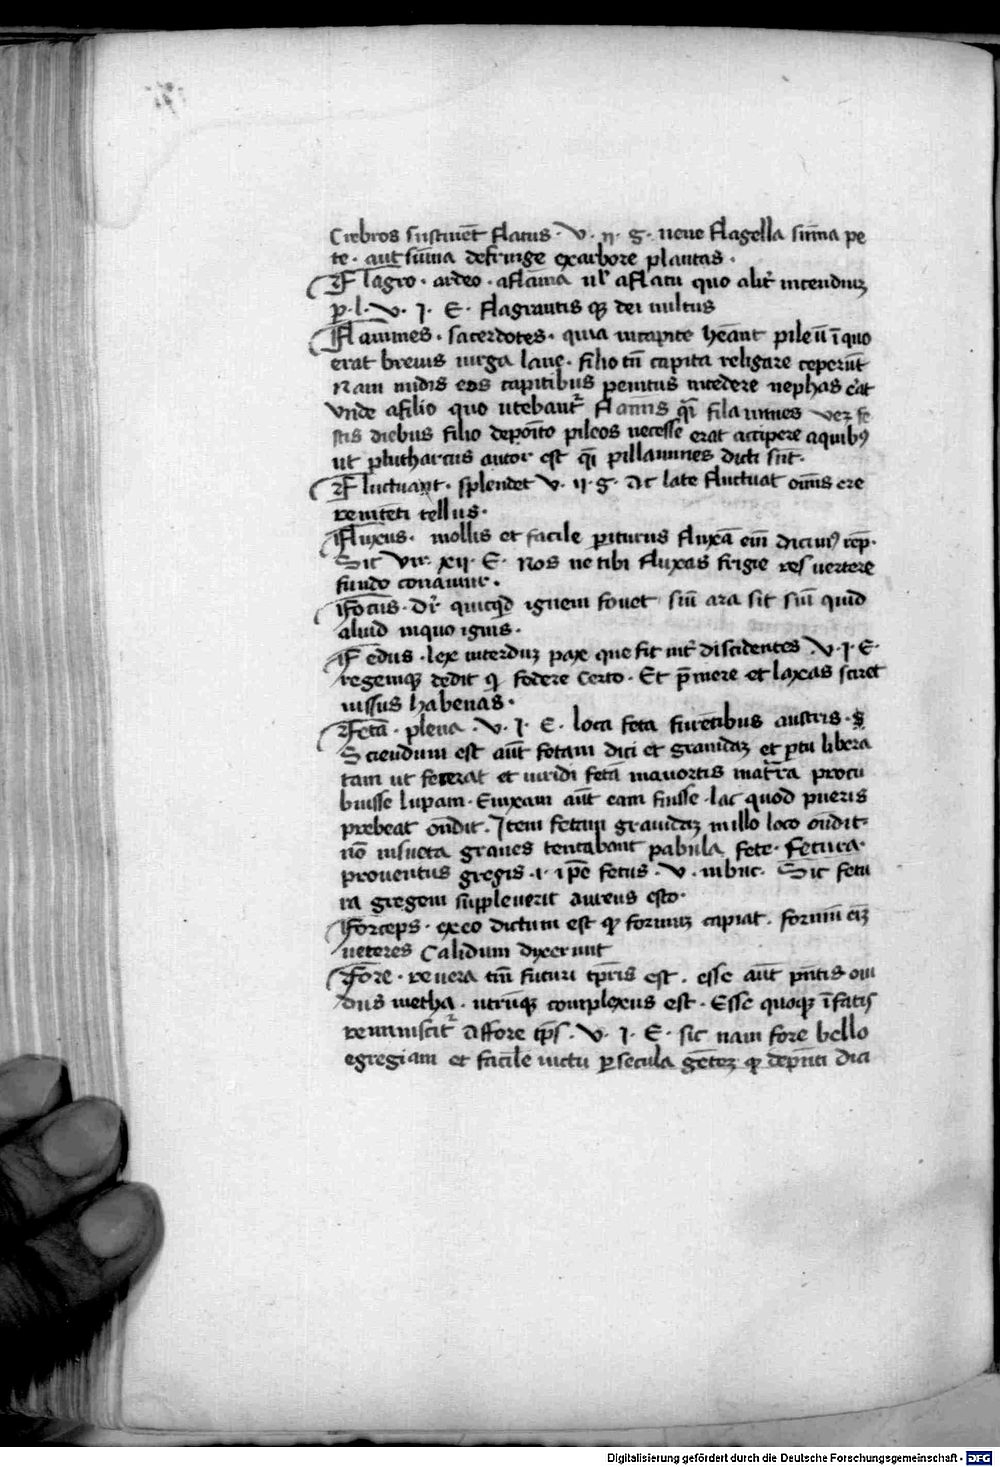 Crebros sustinet flatus · V · ii · g · neue flagella su͞ma pe
te · aut su͞ma defringe exarbore plantas ·
Flagro · ardeo · aflama ul' aflatu quo alit' incenduꝫ
p · l · V · J · E · flagrantis qꝫ dei uultus
Flamines · sacerdotes · quia incapite he͞ant pileu͞ i͞ quo
erat breuis uirga lane · filio tn͞ capita religare ceperu͞t
Nam nudis eos capitibus penitus incedere nephas e͞at
Vnde afilio quo utebant' flamis q͞i filamines
stis diebus filio depoi͞to pileos necesse erat accipere aquibꝫ
ut plutharcus autor est q͞i pillamines dicti su͞t ·
Fluctuant · splendet V · ii · g · Ac late fluctuat om͞is ere
renite͞ti tellus ·
Fluxus · mollis et facile periturus fluxa͞ ei͞
Sic Vir · xii · E · Nos ne tibi fluxas frigie res uertere
fundo conamur ·
Focus · Dr͞ quicq͞d ignem fouet siu͞ ara sit siu͞ quid
aliud inquo ignis ·
Fedus · lex interduꝫ pax que fit int' discidentes · V · J · E ·
regemqꝫ dedit q͞ fodere certo · Et p͞mere et laxas sciret
iussus habenas ·
Feta · plena · V · J · E · loca feta fure͞tibus austris ·
Sciendum est au͞t fetam dici et grauidaꝫ et partu libera
tam ut fecerat et uiridi feta͞ mauortis inat͞ra procu
buisse lupam · Enixam au͞t eam fuisse · lac quod pueris
prebeat on͞dit · Item fetam grauidaꝫ in illo loco on͞dit ·
no͞ insueta graues tentabant pabula fete · Fetura ·
prouentus gregis · i · ip͞e fetus · V · inbuc · Sic fetu
ra gregem suppleuerit aureus esto ·
Forceps · exeo dictum est qꝫ formuꝫ capiat · formu͞ ei͞
ueteres Calidum dixerunt
Fore · reuera tm͞ futuri tp͞ris est · esse au͞t pn͞tis oui
dius metha · utru͞qꝫ complexus est · Esse quoqꝫ i͞ fatis
reminiscit' Affore tp͞s · V · J · E · sic nam fore bello
egregiam et facile uictu per secula ge͞teꝫ
Digitalisierung gefördert durch die Deutsche Forschungsgemeinschaft · DFG